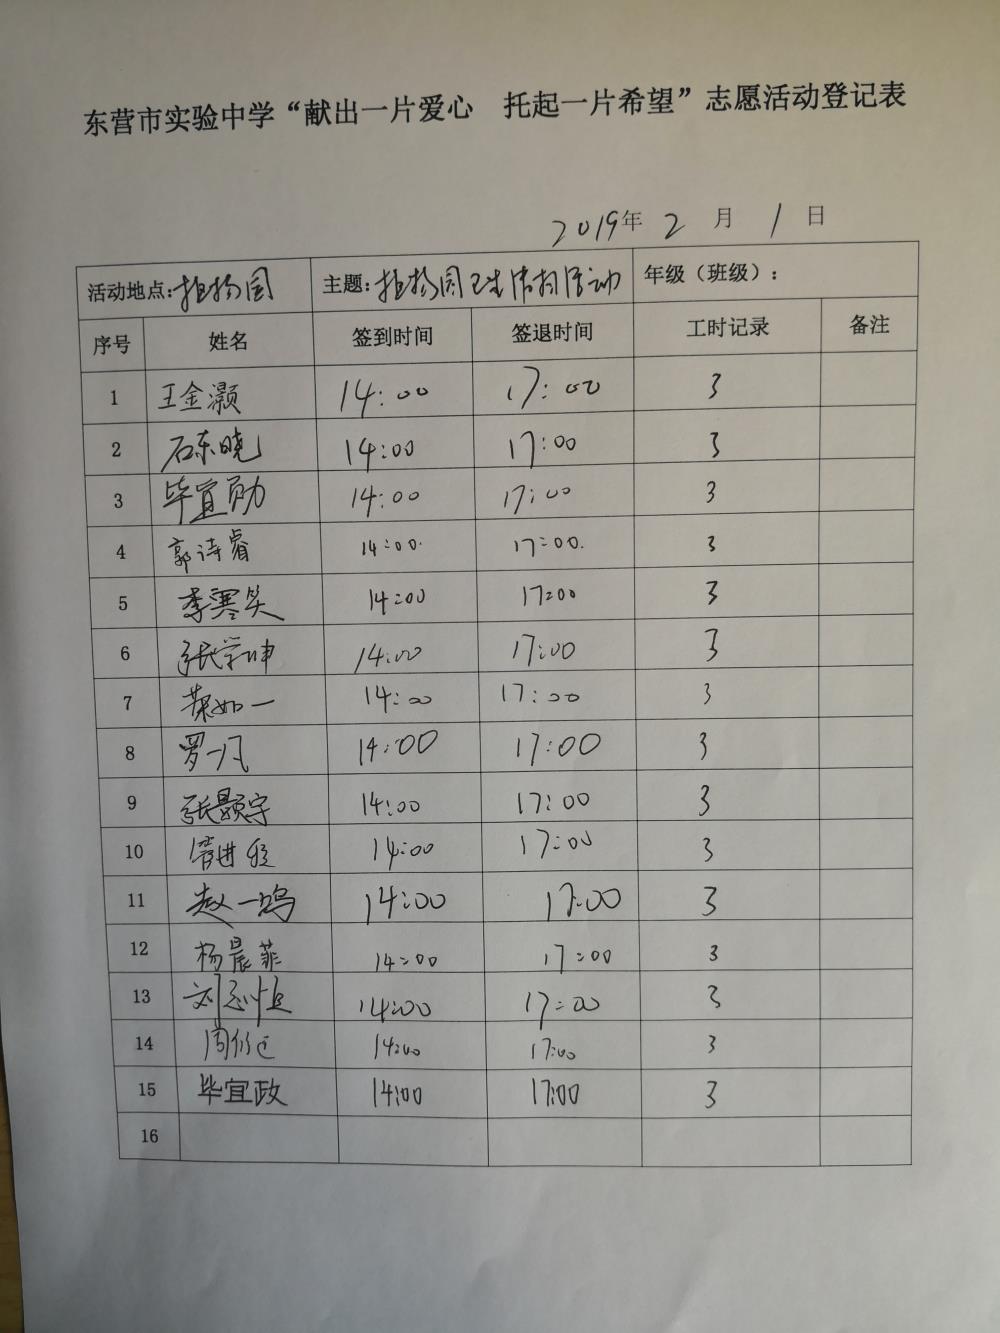 东营市实验中学“献出一片爱心 托起一片希望”志愿活动登记表
2019年 2 月 1 日
活动地点:植物园 主题:植物园卫生清扫活动 年级（班级）:
序号 姓名 签到时间 签退时间 工时记录 备注
1 王金灏 14:00 17:00 3
2 石东晓 14:00 17:00 3
3 毕宜勋 14:00 17:00 3
4 郭诗睿 14:00 17:00 3
5 李寒笑 14:00 17:00 3
6 张学坤 14:00 17:00 3
7 如一 14:00 17:00 3
8 罗一凡 14:00 17:00 3
9 张颢宇 14:00 17:00 3
10 14:00 17:00 3
11 赵一鸣 14:00 17:00 3
12 杨晨菲 14:00 17:00 3
13 刘志恒 14:00 17:00 3
14 周 14:00 17:00 3
15 毕宜政 14:00 17:00 3
16